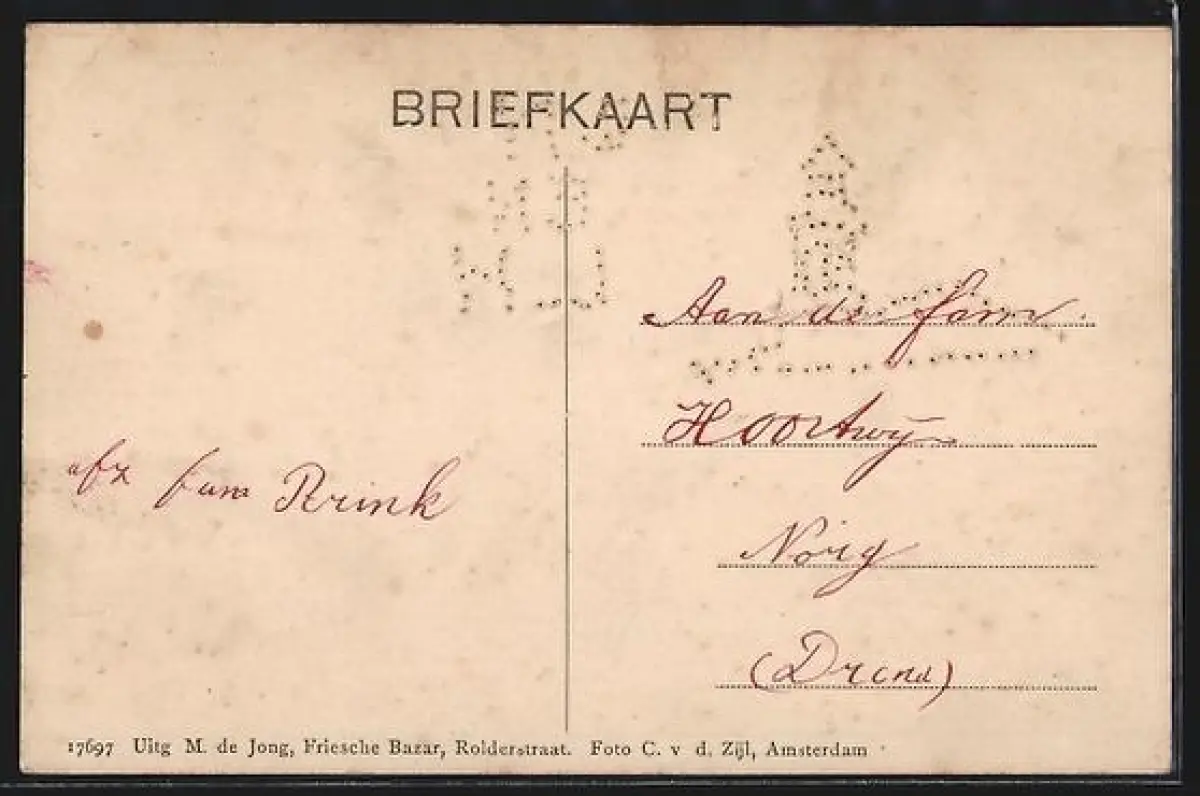 BRIEFKAART
afz fam Brink
Aan de fam.
Hoortwÿ
Norg
(Drent)
17697 Uitg M. de Jong, Friesche Bazar, Rolderstraat. Foto C. v d. Zijl, Amsterdam